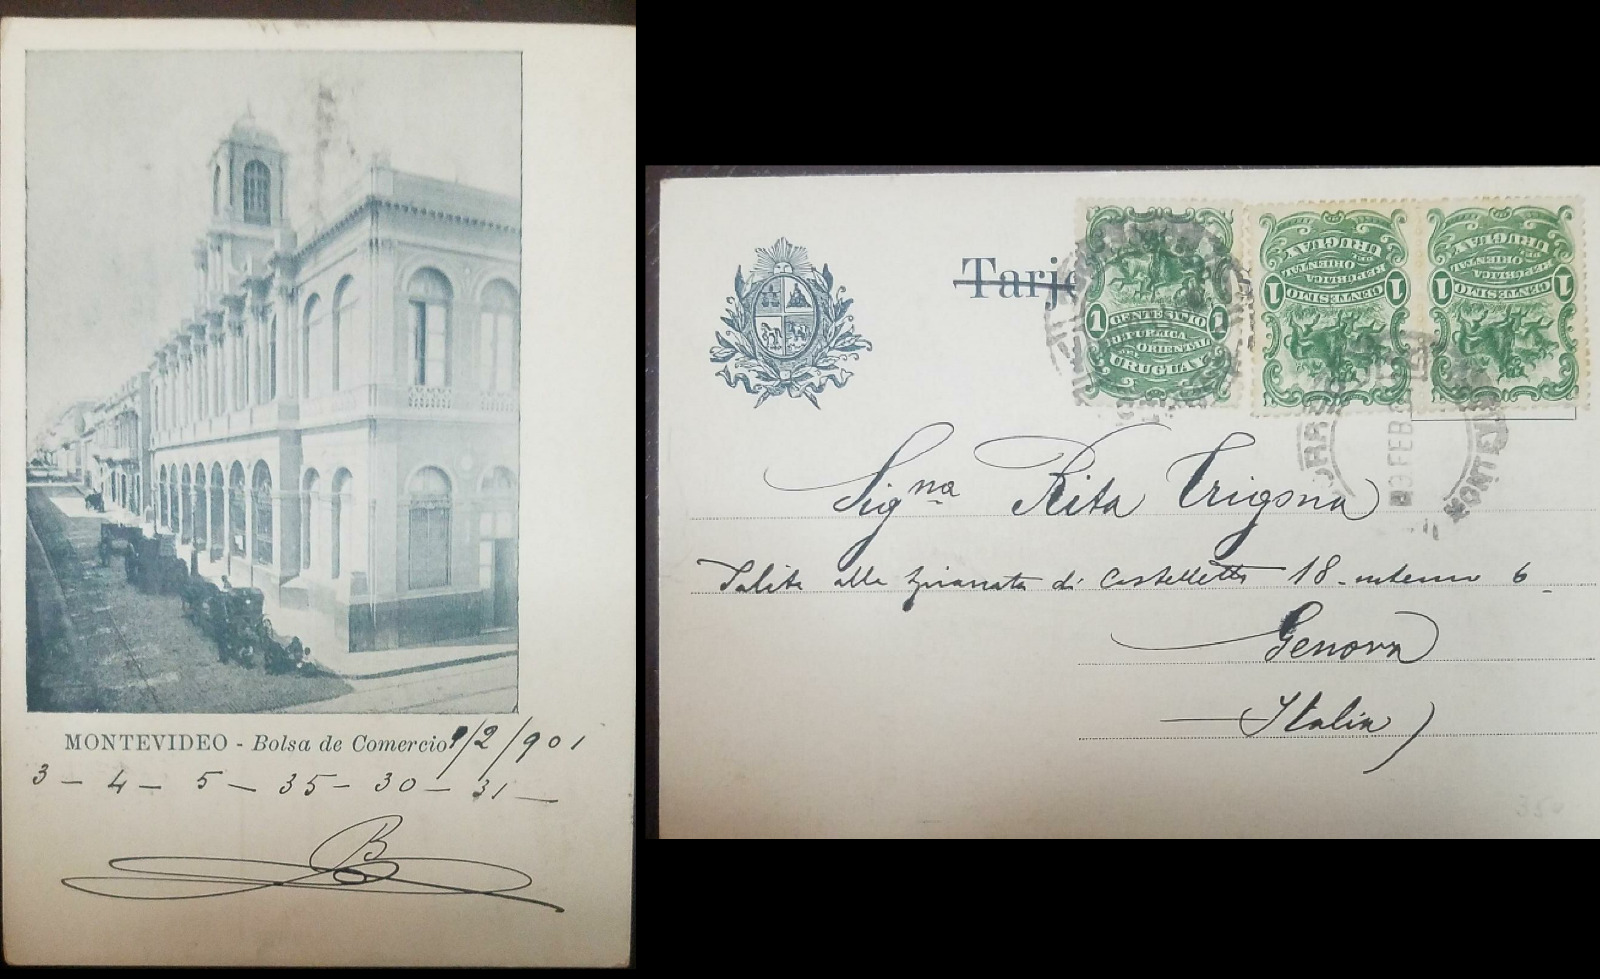 MONTEVIDEO - Bolsa de Comercio 9/2/901
3 - 4 - 5 - 35 - 30 - 31 -
B
Tarje
1 CENTESIMO 1
REPUBLICA
ORIENTAL
DEL
URUGUAY
1 CENTESIMO 1
REPUBLICA
ORIENTAL
DEL
URUGUAY
1 CENTESIMO 1
REPUBLICA
ORIENTAL
DEL
URUGUAY
FEB
MONTEV
Signa Rita Trigona
Salita alla Spianata di Castelletto 18 - interno 6
Genova
Italia
350